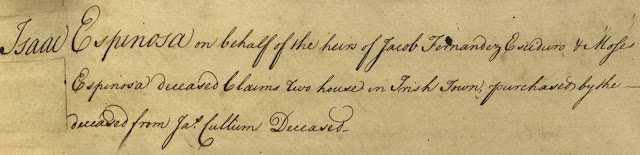 Isaac Espinosa on behalf of the heirs of Jacob Fernandez Escuduro & Mose
Espinosa deceased Claims two house in Irish Town, purchased by the —
deceased from Jas. Cullum Deceased —